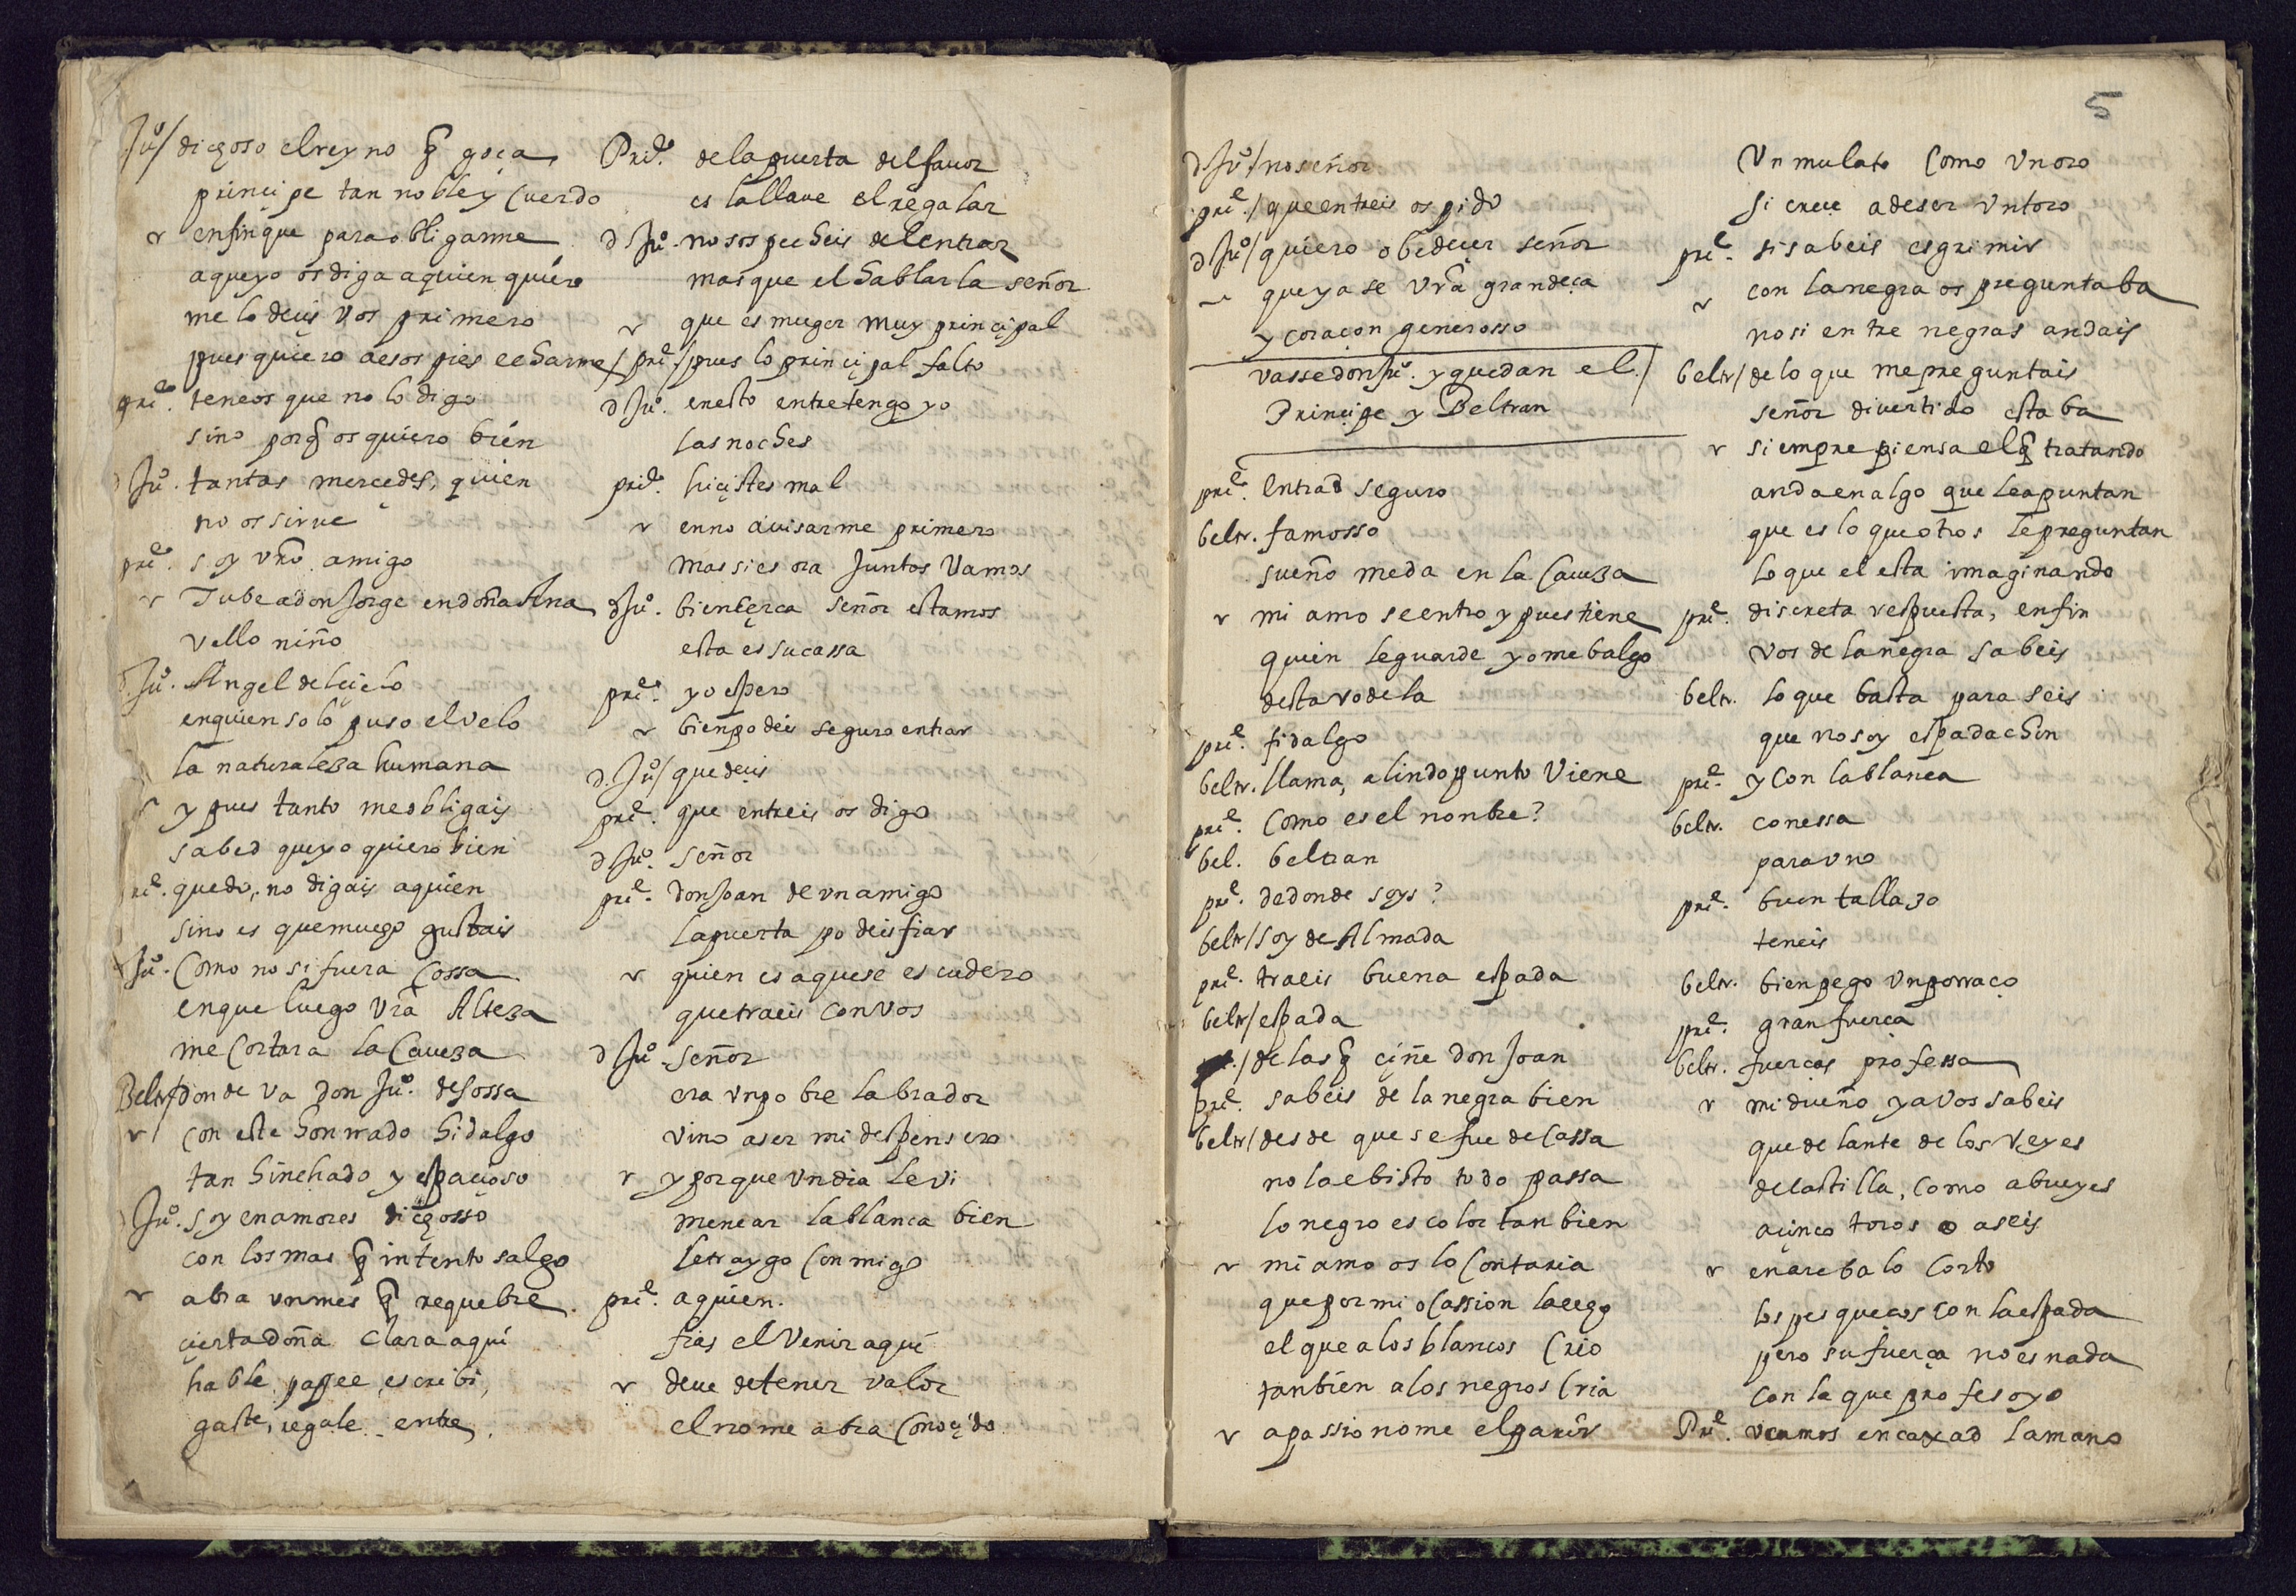 Juº/ diçhoso el reyno q̃ goça
prinçipe tan noble y Cuerdo
v en fin que para obligarme
a que yo os diga a quien quiero
me lo deçis vos primero
pues quiero a esos pies echarme
prie. teneos que no lo digo
sino porq̃ os quiero bien
d Juº. tantas merçedes, quien
no os sirue
prie. soy vro amigo
v Tube a don Jorge en doña Ana
vello niño
d. Juº. Angel del çielo
en quien solo puso el velo
la naturaleza humana
v y pues tanto me obligais
sabed que yo quiero bien
prie. quedo, no digais a quien
sino es que muego gustais
d Juº. Como no si fuera Cossa
en que luego vra Alteza
me Cortara la Caueza
Beltr/ donde va don Juº. de sossa
v con este honrrado hidalgo
tan hinchado y espaçioso
d Juº. soy en amores diçhosso
con los mas q̃ intento salgo
v abra vn mes q̃ requebre
çierta doña Clara aqui
hable, passee, escribi,
gaste, regale, entre,
Prie. de la puerta del fauor
es la llaue el regalar
d Juº. no sospecheis del entrar
mas que el hablarla señor
v que es muger muy prinçipal
prie/ pues lo prinçipal falto
d Juº. en esto entretengo yo
las noches
prie. hiçistes mal
v en no auisarme primero
mas si es ora Juntos Vamos
d Juº. bien çerca señor estamos
esta es su cassa
prie. yo espero
v bien podeis seguro entrar
d. Juº/ que deçis
prie. que entreis os digo
d Juº. señor
prie. don Joan de vn amigo
la puerta podeis fiar
v quien es aquese escudero
que traeis con vos
d Juº señor
era vn pobre labrador
vino a ser mi despensero
v y porque vn dia le vi
menear la blanca bien
le traygo Conmigo
prie. a quien.
fias el Venir aqui
v deue de tener valor
el nome abra Conoçido
5
d Juº/ no señor
prie./ que entreis os pido
d Juº/ quiero obedeçer señor
v que ya se vra grandeça
y coraçon generosso
vasse don Juº. y quedan el /
Prinçipe y Beltran
prie. Entrad seguro
beltr. famosso
sueño me da en la Caueza
v mi amo se entro y pues tiene
quien le guarde yo me balgo
desta rodela
prie. fidalgo
beltr. llama, a lindo punto Viene
prie. Como es el nonbre?
bel. beltran
prie. de donde soys?
beltr/ soy de Almada
prie. traeis buena espada
beltr/ espada
/ de las q̃ çiñe don Joan
prie. sabeis de la negra bien
beltr/ desde que se fue de Cassa
no la e bisto todo passa
lo negro es color tan bien
v mi amo os lo Contaria
que por mi oCassion la ego
el que a los blancos Crio
tanbien a los negros Cria
v apassionome el parir
Vn mulato Como Vn oro
si creçe a de ser vn toro
prie. si sabeis esgrimir
v con la negra os preguntaba
no si entre negras andais
beltr/ de lo que me preguntais
señor diuertido estaba
v siempre piensa el q̃ tratando
anda en algo que le apuntan
que es lo que otros le preguntan
lo que el esta imaginando
prie. discreta respuesta, en fin
vos de la negra sabeis
beltr. lo que basta para seis
que no soy espadachin
prie. y Con la blanca
beltr. con essa
para vno
prie. buen tallazo
teneis
beltr. bien pego vn porraço
prie. gran fuerça
beltr. fuerças professa
v mi dueño ya vos sabeis
que delante de los Reyes
de Castilla, como a bueyes
a çinco toros o a seis
v en areba lo Corto
los pesqueços con la espada
pero su fuerça no es nada
con la que profeso yo
Prie. veamos encaxad la mano